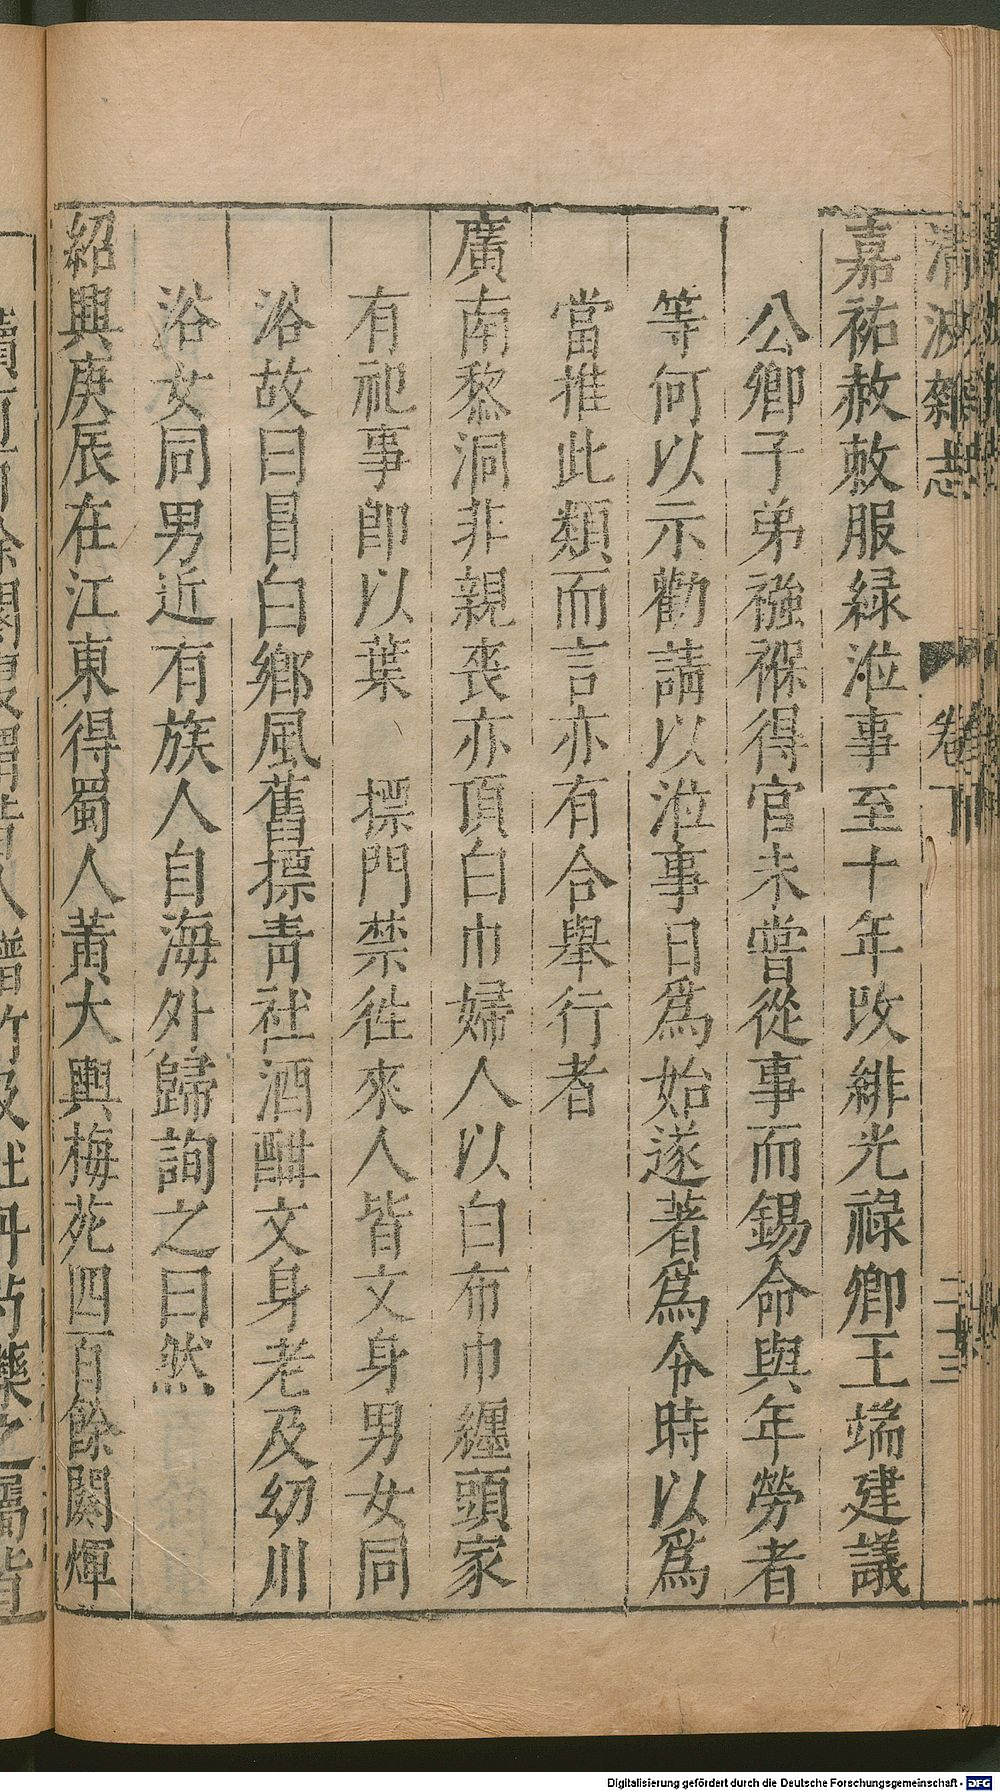 清波雜志 卷下 二十三
嘉祐赦敕服緑涖事至十年改緋光祿卿王端建議
公卿子弟襁褓得官未嘗從事而錫命與年勞者
等何以示勸請以涖事日爲始遂著爲令時以爲
當推此類而言亦有合舉行者
廣南黎洞非親丧亦頂白巾婦人以白布巾纏頭家
有祀事卽以葉 摽門禁徃來人皆文身男女同
浴故曰冒白鄉風舊摽青社酒酣文身老及㓜川
浴女同男近有族人自海外歸詢之曰然
紹興庚辰在江東得蜀人黄大輿梅苑四百餘闋煇
Digitalisierung gefördert durch die Deutsche Forschungsgemeinschaft - DFG